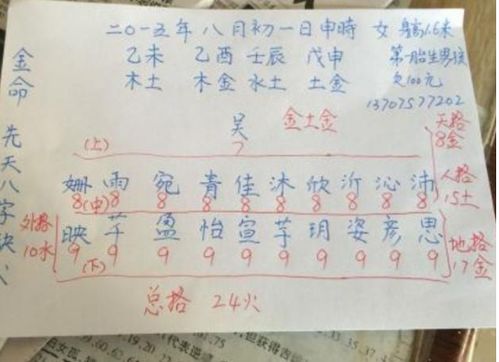 二〇一五年八月初一日申時 女 身高1.6米
乙未 乙酉 壬辰 戊申 第一胎生男孩
木土 木金 水土 土金 欠100元
13707577202
金命 先天八字缺火
吴 金土金
(上) 7
天格 8金
姗 雨 宛 青 佳 沐 欣 沂 沁 沛
8 (中) 8 8 8 8 8 8 8 8 8
人格 15土
外格 10水
映 芊 盈 怡 宣 芋 玥 姿 彦 思
9 9 9 9 9 9 9 9 9 9
(下)
地格 17金
总格 24火